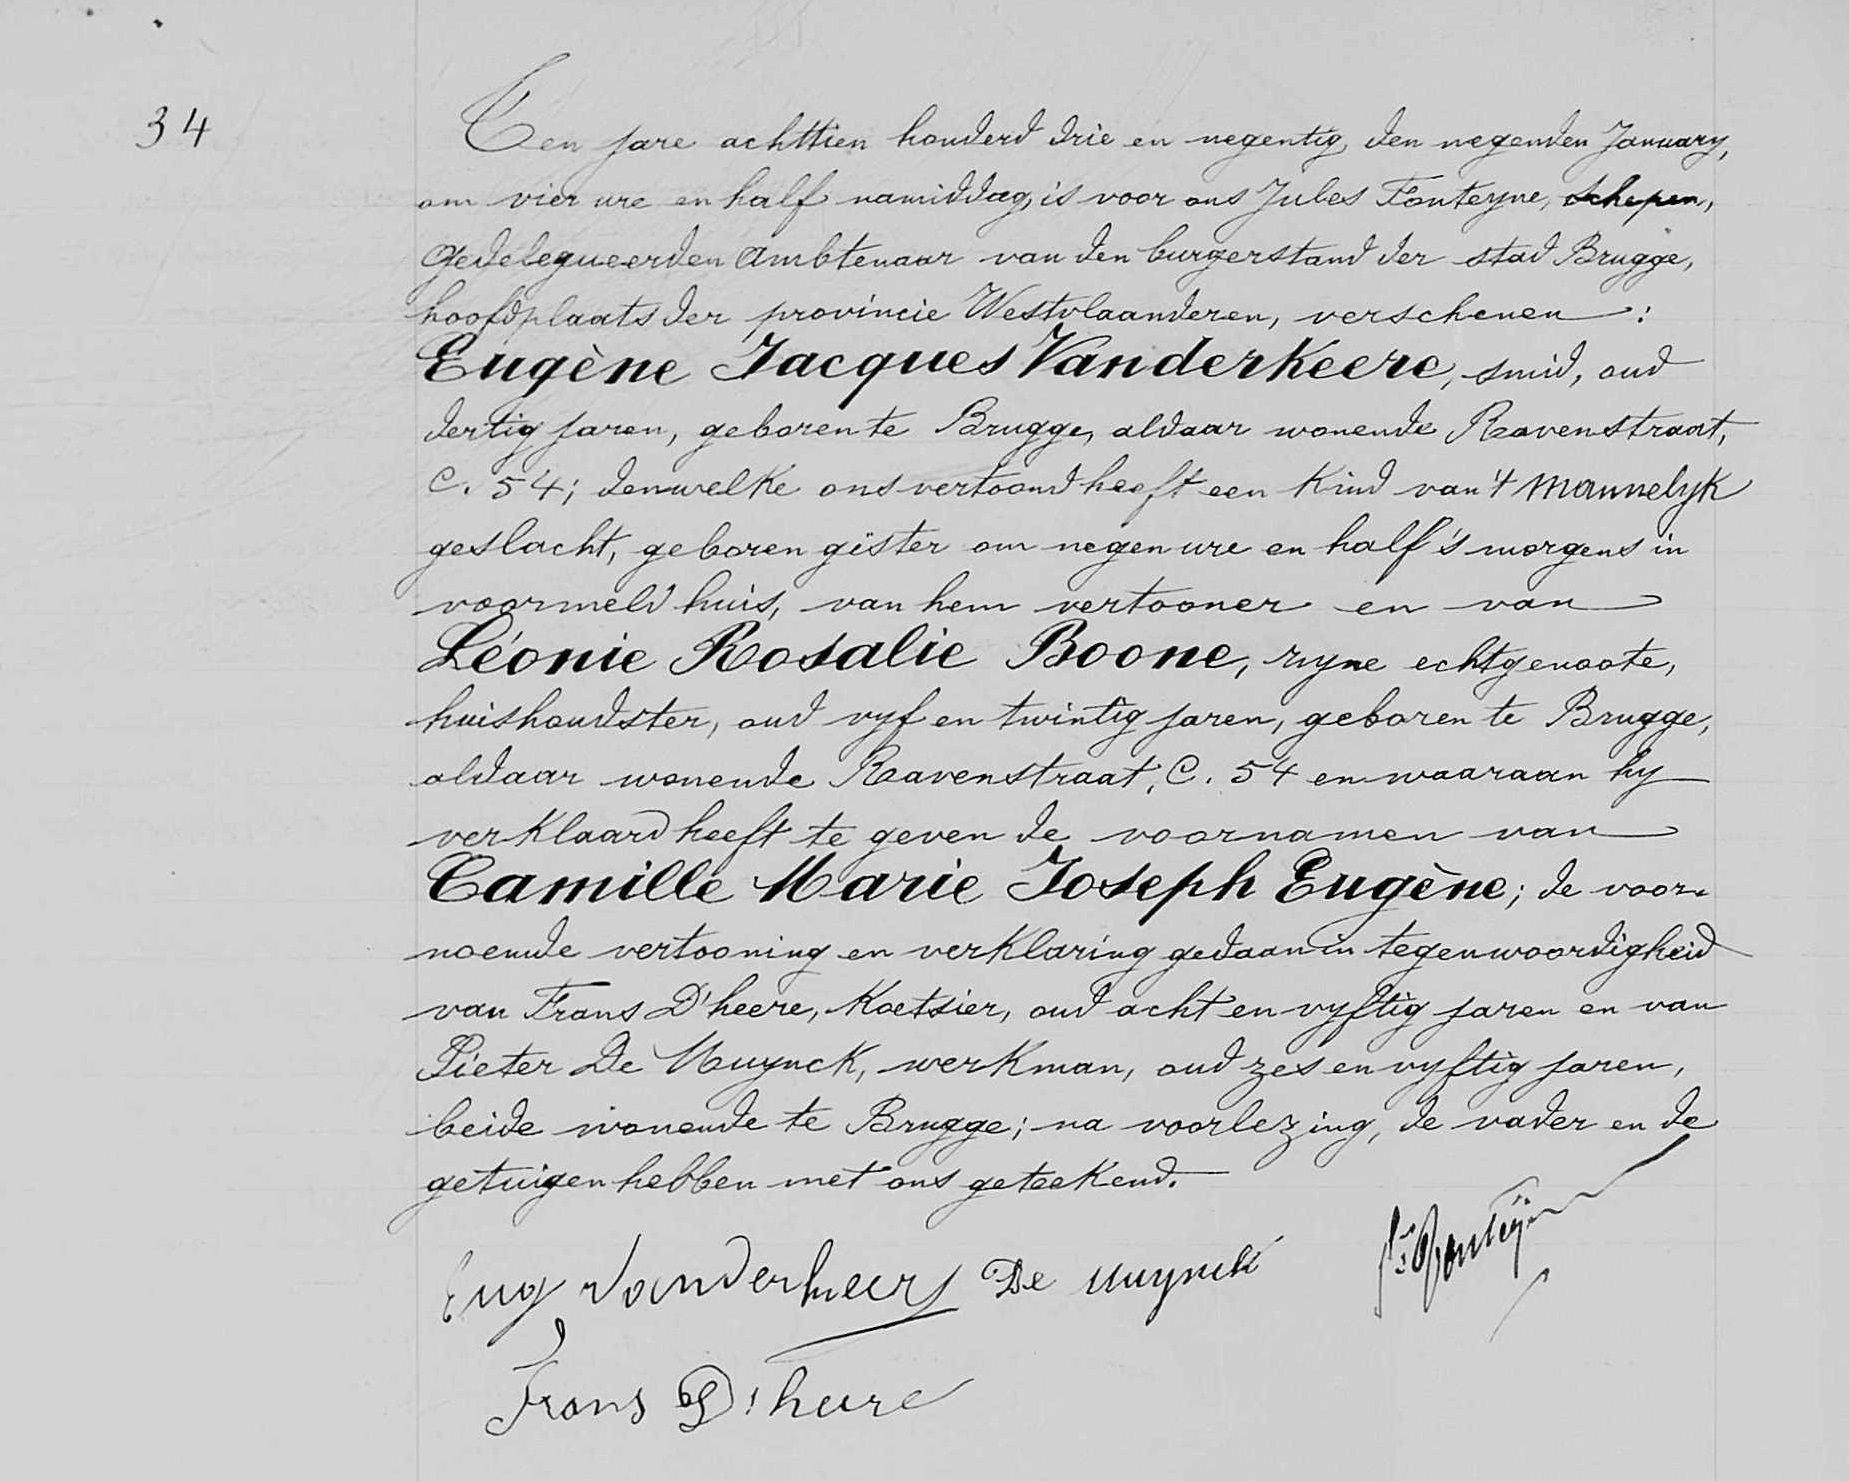 34
Ten jare achttien honderd drie en negentig, den negenden January,
om vier ure en half namiddag, is voor ons Jules Fonteyne, Schepen,
Gedelegueerden Ambtenaar van den burgerstand der stad Brugge,
hoofdplaats der provincie Westvlaanderen, verschenen :
Eugène Jacques Vanderkeere, smid, oud
dertig jaren, geboren te Brugge, aldaar wonende Ravenstraat,
C. 54; denwelke ons vertoond heeft een Kind van 't Mannelyk
geslacht, geboren gister om negen ure en half 's morgens in
voormeld huis, van hem vertooner en van
Léonie Rosalie Boone, zyne echtgenoote,
huishoudster, oud vyf en twintig jaren, geboren te Brugge,
aldaar wonende Ravenstraat, C. 54 en waaraan hy
verklaard heeft te geven de voornamen van
Camille Marie Joseph Eugène; de voor-
noemde vertooning en verklaring gedaan in tegenwoordigheid
van Frans D'heere, Koetsier, oud acht en vyftig jaren en van
Pieter De Muynck, werkman, oud zes en vyftig jaren,
beide wonende te Brugge; na voorlezing, de vader en de
getuigen hebben met ons geteekend.
Eug Vanderkeere De Muynck Js Fonteyne
Frans D'heere